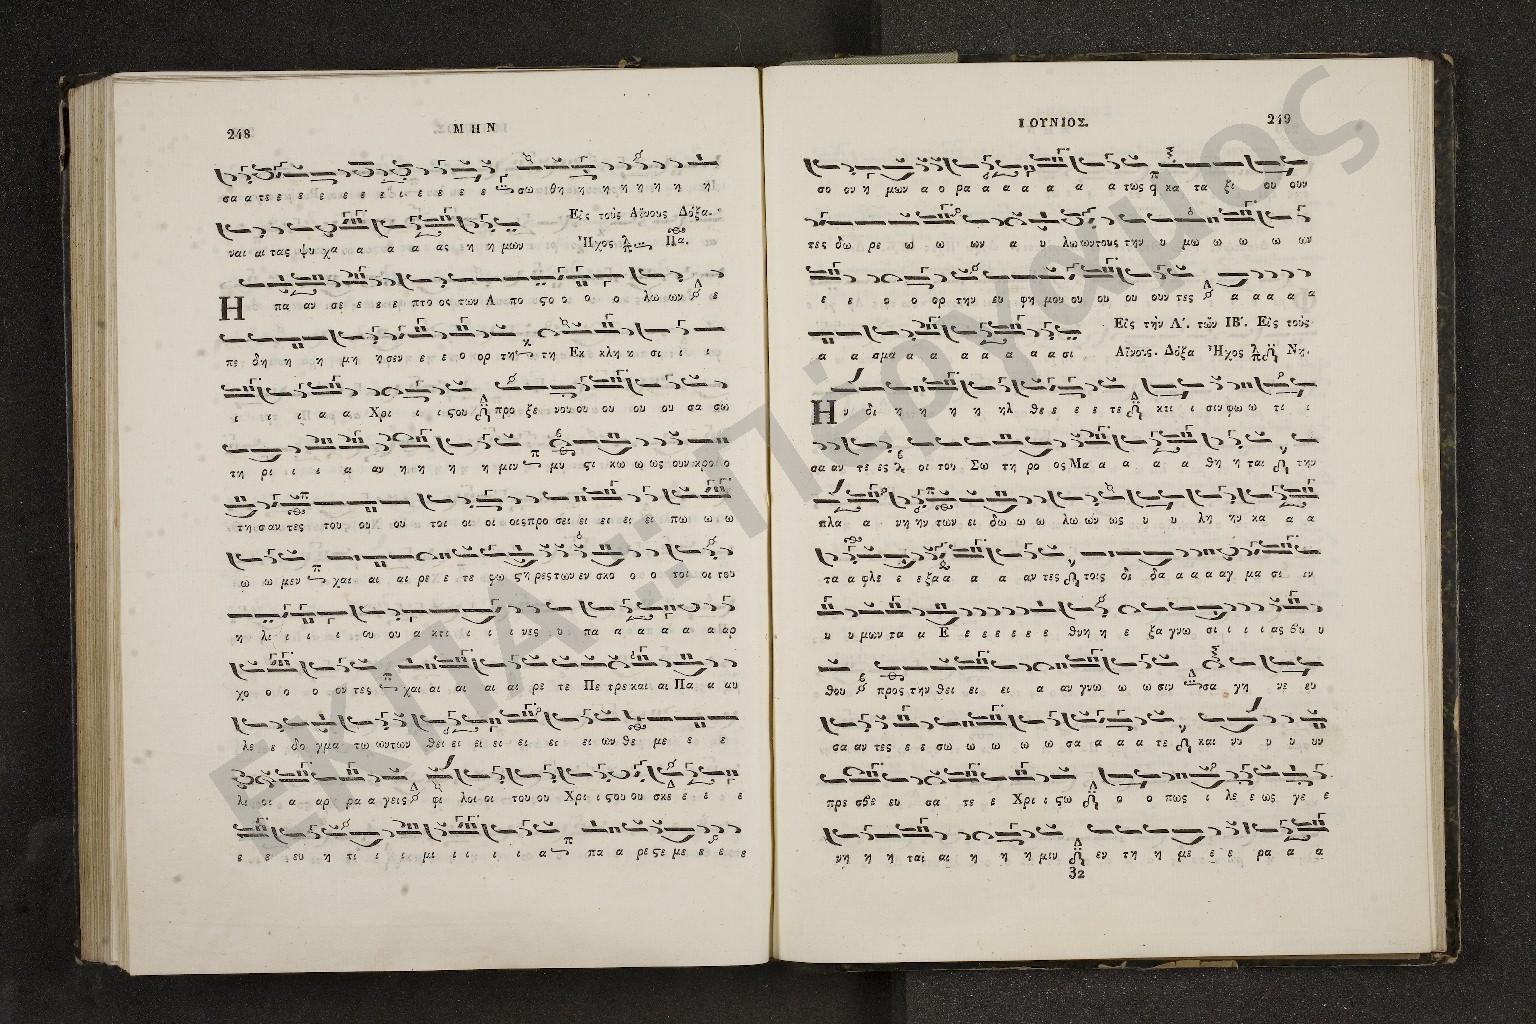 248
ΜΗΝ
σα α τε ε ε ε ε ε ε ι ε ε ε ε σω θη η η η η η η η
ναι αι τας ψυ χα α α α α ας η η μων
Εἰς τοὺς Αἴνους Δόξα.
Ἦχος Πα.
Η πα αν σε ε ε ε πτο ος των Α πο ϛο ο ο ο λω ων ε
πε δη η η μη η σεν ε ε ο ορ τη τη Εκ κλη η σι ι ι
ι ι ι α α Χρι ι ι ϛου προ ξε νου ου ου ου ου σα σω
τη ρι ι ι α αν η η η η μιν μυ ϛι κω ω ως ουν κρο ο
τη σαν τες του ου ου τοι οι οι οις προ σει ει ει ει ει πω ω ω
ω ω μεν χαι αι αι ρε ε τε φω ϛη ρες των εν σκο ο ο τοι οι του
η λι ι ι ι ου ου α κτι ι ι ι νες υ πα α α α α α αρ
χο ο ο ο ον τες χαι αι αι αι αι ρε τε Πε τρε και αι Πα α αυ
λε ε δο γμα τω ων των θει ει ει ει ει ει ει ων θε με ε ε
λι οι α αρ ρα α γεις φι λοι οι του ου Χρι ι ϛου ου σκε ε ε ε
ε ε ευ η τι ι ι μι ι ι ι ι α πα α ρε ϛε με ε ε ε
ΙΟΥΝΙΟΣ.
249
σο ον η μων α ο ρα α α α α α α τως κα τα ξι ου ουν
τες δω ρε ω ω ων α υ λω ων τους την υ μω ω ω ω ων
ε ε ο ο ορ την ευ φη μου ου ου ου ουν τες α α α α α
α α σμα α α α α α α σι
Εἰς τὴν Λ΄. τῶν ΙΒ΄. Εἰς τοὺς
Αἴνους. Δόξα Ἦχος Νη.
Η υ δι η η η η ηλ θε ε ε ε τε κτι ι σιν φω ω τι ι
σα αν τε ες οι του Σω τη ρο ος Μα α α α α θη η ται την
πλα α νη ην των ει δω ω ω λω ων ως υ υ λη ην κα α α
τα α φλε ε ε ξα α α α αν τες τοις δι δα α α αγ μα σι ιν
υ υ μων τα α Ε ε ε ε ε ε ε θνη η ε ξα γνω σι ι ι ι ας βυ υ
θου προς την θει ει ει α αν γνω ω ω σιν σα γη νε ευ
σα αν τες ε ε σω ω ω ω ω σα α α α τε και νυ υ υ υν
πρε σβε ευ σα τε ε Χρι ι ϛω ο ο πως ι λε ε ως γε ε
νη η η ται αι η η η μιν εν τη η με ε ε ρα α α
32
ΕΚΠΑ :: Πέργαμος